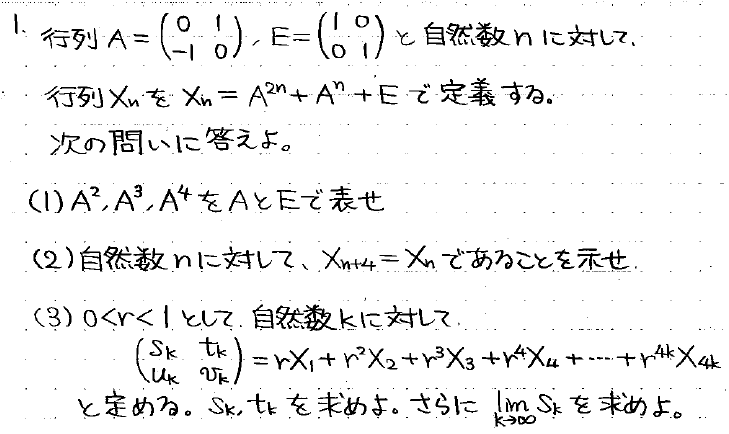 1. 行列 A = (0 1 -1 0), E = (1 0 0 1) と自然数 n に対して.
行列 Xn を Xn = A^{2n} + A^n + E で定義する。
次の問いに答えよ。
(1) A^2, A^3, A^4 を A と E で表せ
(2) 自然数 n に対して、X_{n+4} = Xn であることを示せ.
(3) 0<r<1 として. 自然数 k に対して.
(S_k t_k u_k v_k) = rX_1 + r^2X_2 + r^3X_3 + r^4X_4 + … + r^{4k}X_{4k}
と定める。S_k, t_k を求めよ。さらに lim_{k→∞} S_k を求めよ。